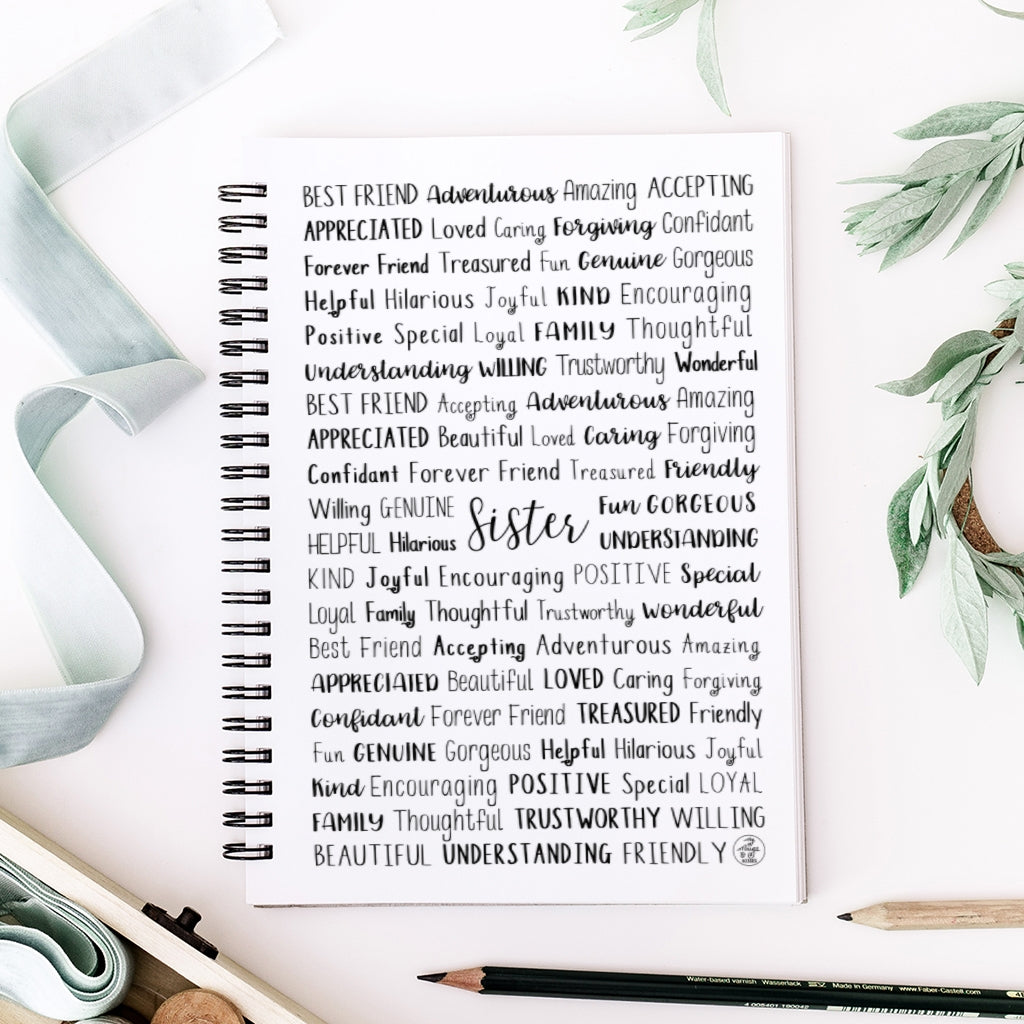 BEST FRIEND Adventurous Amazing ACCEPTING
APPRECIATED Loved Caring Forgiving Confidant
Forever Friend Treasured Fun Genuine Gorgeous
Helpful Hilarious Joyful KIND Encouraging
Positive Special Loyal FAMILY Thoughtful
Understanding WILLING Trustworthy Wonderful
BEST FRIEND Accepting Adventurous Amazing
APPRECIATED Beautiful Loved Caring Forgiving
Confidant Forever Friend Treasured Friendly
Willing GENUINE Sister Fun GORGEOUS
HELPFUL Hilarious UNDERSTANDING
KIND Joyful Encouraging POSITIVE Special
Loyal Family Thoughtful Trustworthy Wonderful
Best Friend Accepting Adventurous Amazing
APPRECIATED Beautiful LOVED Caring Forgiving
Confidant Forever Friend TREASURED Friendly
Fun GENUINE Gorgeous Helpful Hilarious Joyful
Kind Encouraging POSITIVE Special LOYAL
FAMILY Thoughtful TRUSTWORTHY WILLING
BEAUTIFUL UNDERSTANDING FRIENDLY
Water-based varnish Wasserlack SV Made in Germany www.Faber-Castell.com
4 005401 190042